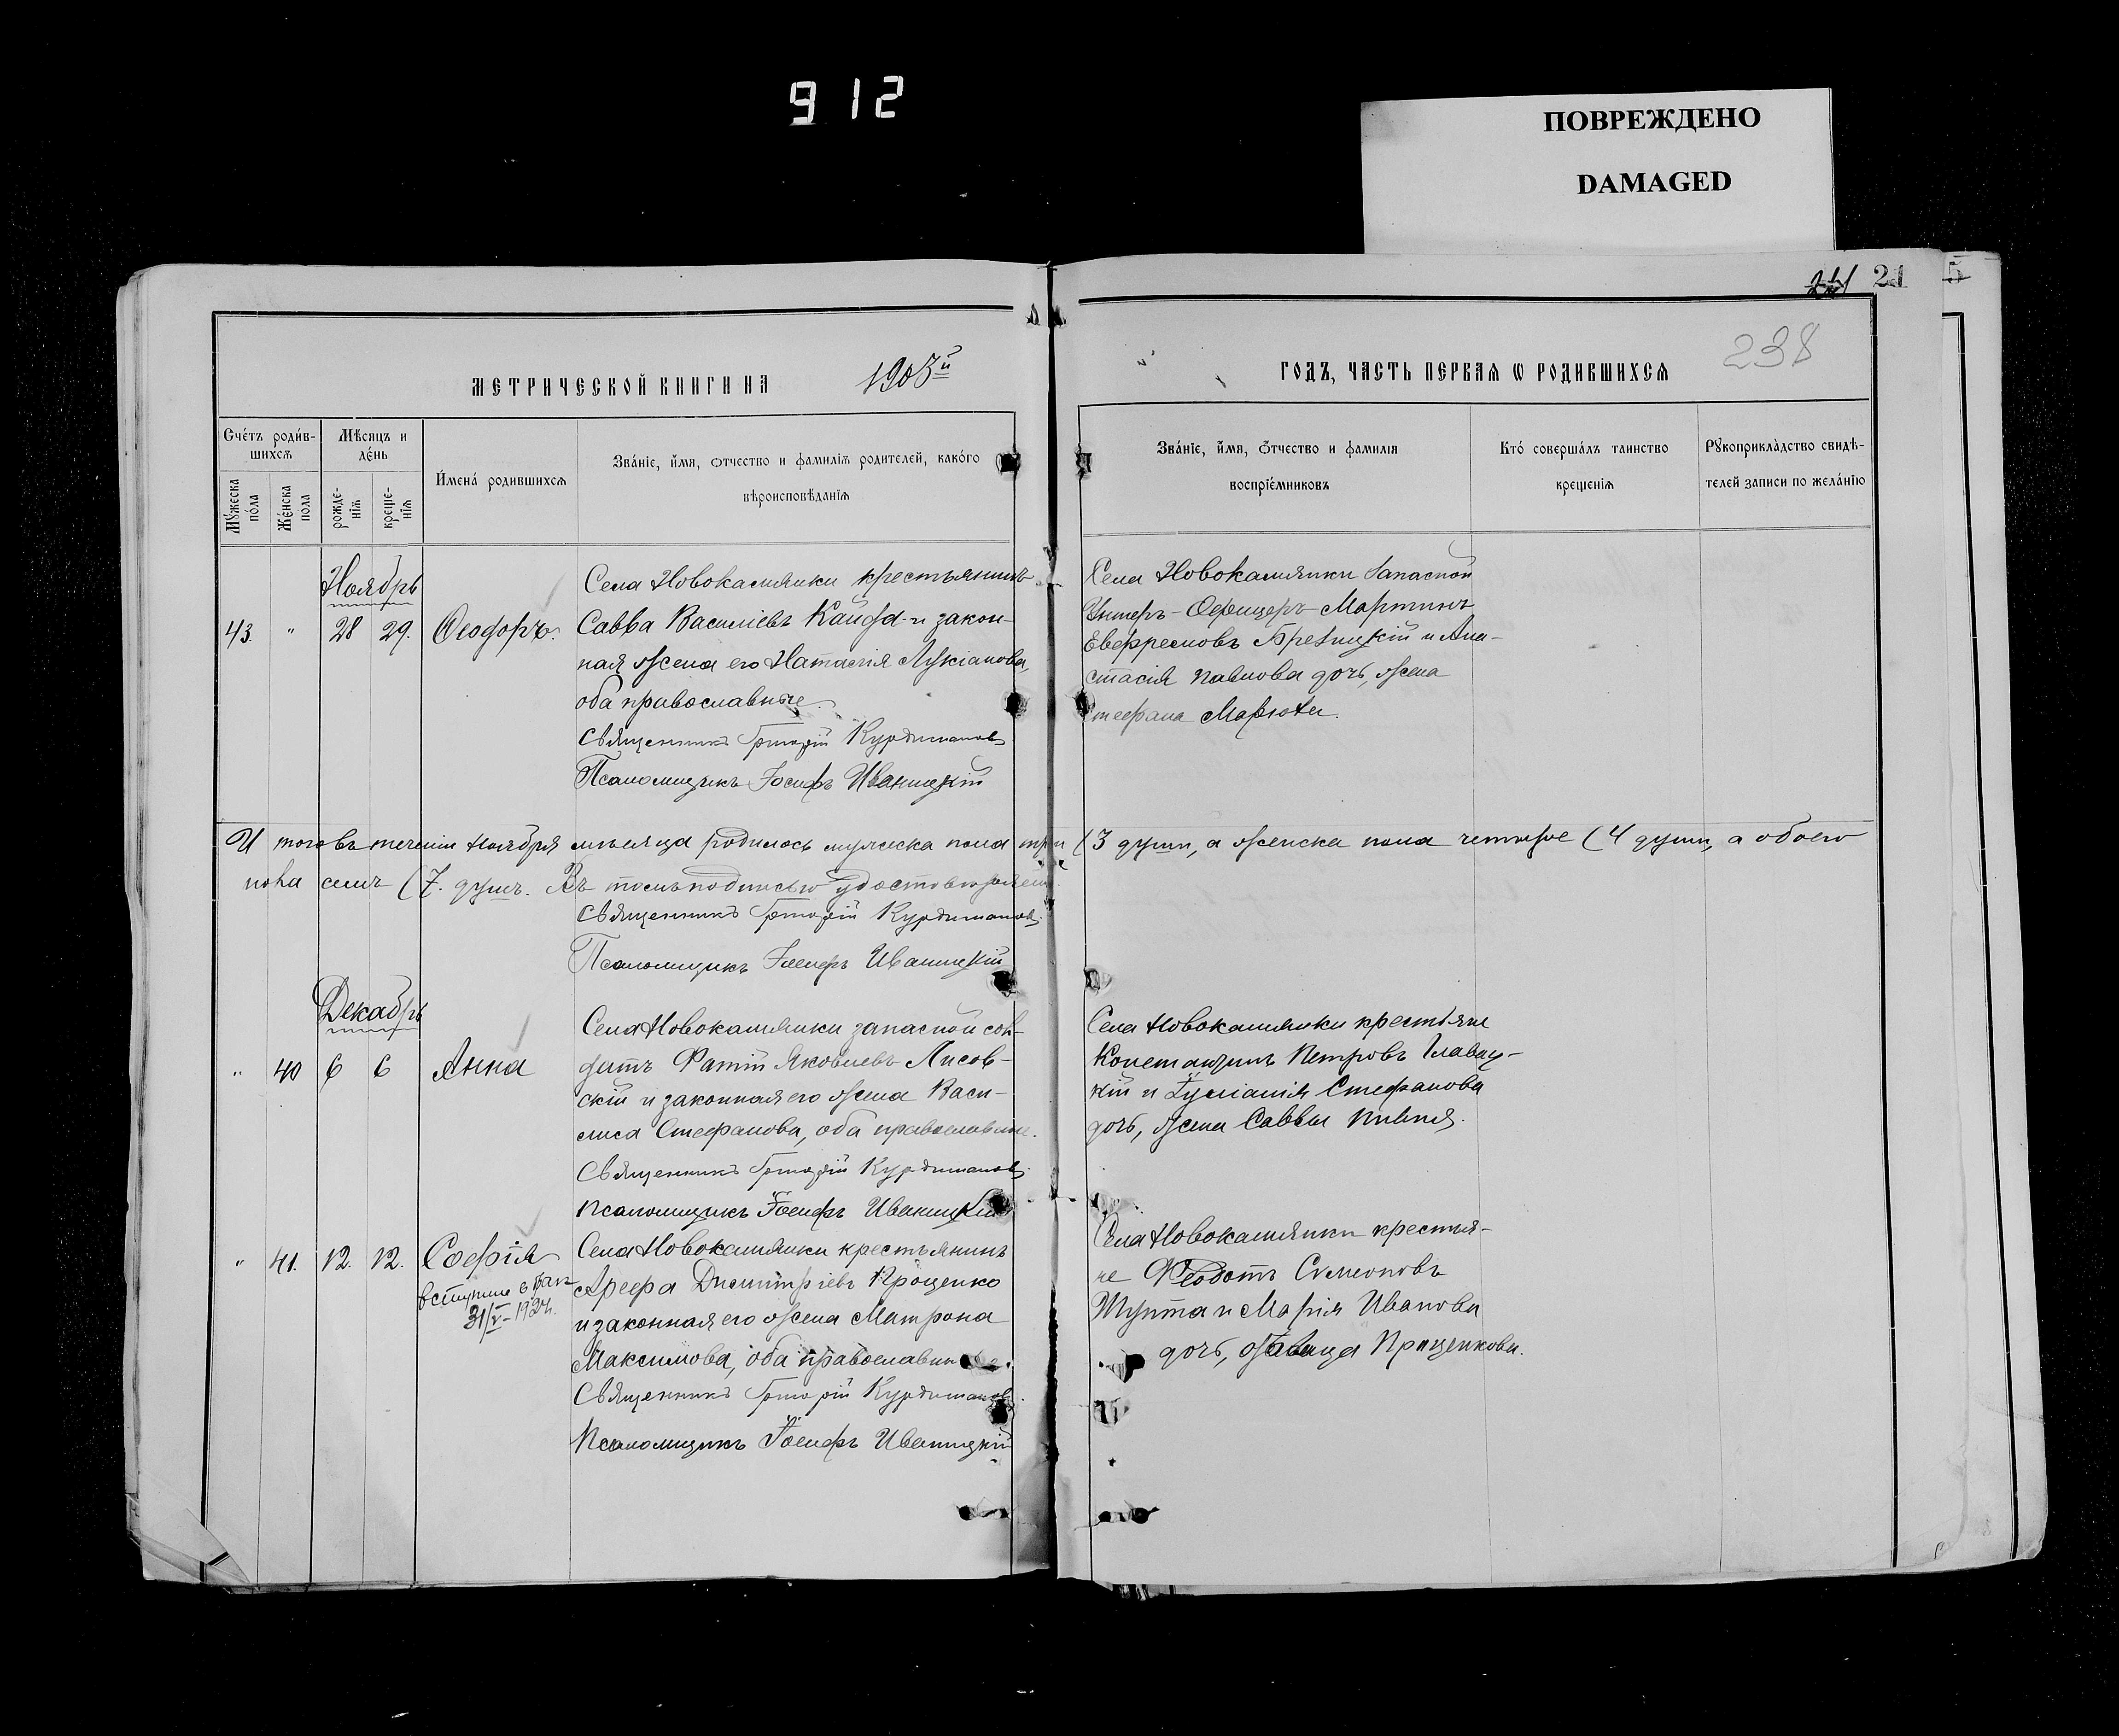 912
ПОВРЕЖДЕНО
DAMAGED
21
5
238
МЕТРИЧЕСКОЙ КНИГИ НА 1903й
ГОДЪ, ЧАСТЬ ПЕРВАЯ Ѡ РОДИВШИХСЯ
Счетъ родив-
шихся
Мѣсяцъ и
день
Мужеска
пола
Женска
пола
рожде-
нія
креще-
нія
Имена родившихся
Званіе, имя, отчество и фамилія родителей, какого
вѣроисповѣданія
Званіе, имя, отчество и фамилія
воспріемниковъ
Кто совершалъ таинство
крещенія
Рукоприкладство свидѣ-
телей записи по желанію
Ноябрь
43. " 28 29. Ѳеодоръ.
Села Новокамянки крестьянинъ
Савва Василіевъ Кайфа и закон-
ная жена его Наталія Лукіанова,
оба православные.
Священникъ Григорій Курдиманов
Псаломщикъ Іосифъ Иваницкій
Села Новокамянки Запасной
Унтеръ-Офицеръ Мартинъ
Евфремовъ Брезницкій и Ана-
стасія Павлова дочь, жена
Стефана
Итого въ теченіи Ноября мѣсяца родилось мужеска пола три (3 души, а женска пола четыре (4 души, а обоего
пола семь (7. душъ. Въ томъ подписью удостовѣряемъ.
Священникъ Григорій Курдиманов
Псаломщикъ Іосифъ Иваницкій
Декабрь
" 40 6 6 Анна
Села Новокамянки запасной сол-
датъ Фатій Яковлевъ Лисов-
скій и законная его жена Васи-
лиса Стефанова, оба православные.
Священникъ Григорій Курдиманов
Псаломщикъ Іосифъ Иваницкій
Села Новокамянки крестьяне
Константинъ Петровъ Главац-
кій и Іуліанія Стефанова
дочь, жена Саввы
" 41. 12. 12. Софія
вступила в брак
31/V-1924.
Села Новокамянки крестьянинъ
Арефа Димитріевъ Проценко
и законная его жена Матрона
Максимова, оба православные.
Священникъ Григорій Курдиманов
Псаломщикъ Іосифъ Иваницкій
Села Новокамянки крестья-
не Ѳеодотъ Симеоновъ
Шупта и Марія Иванова
дочь, Проценкова.